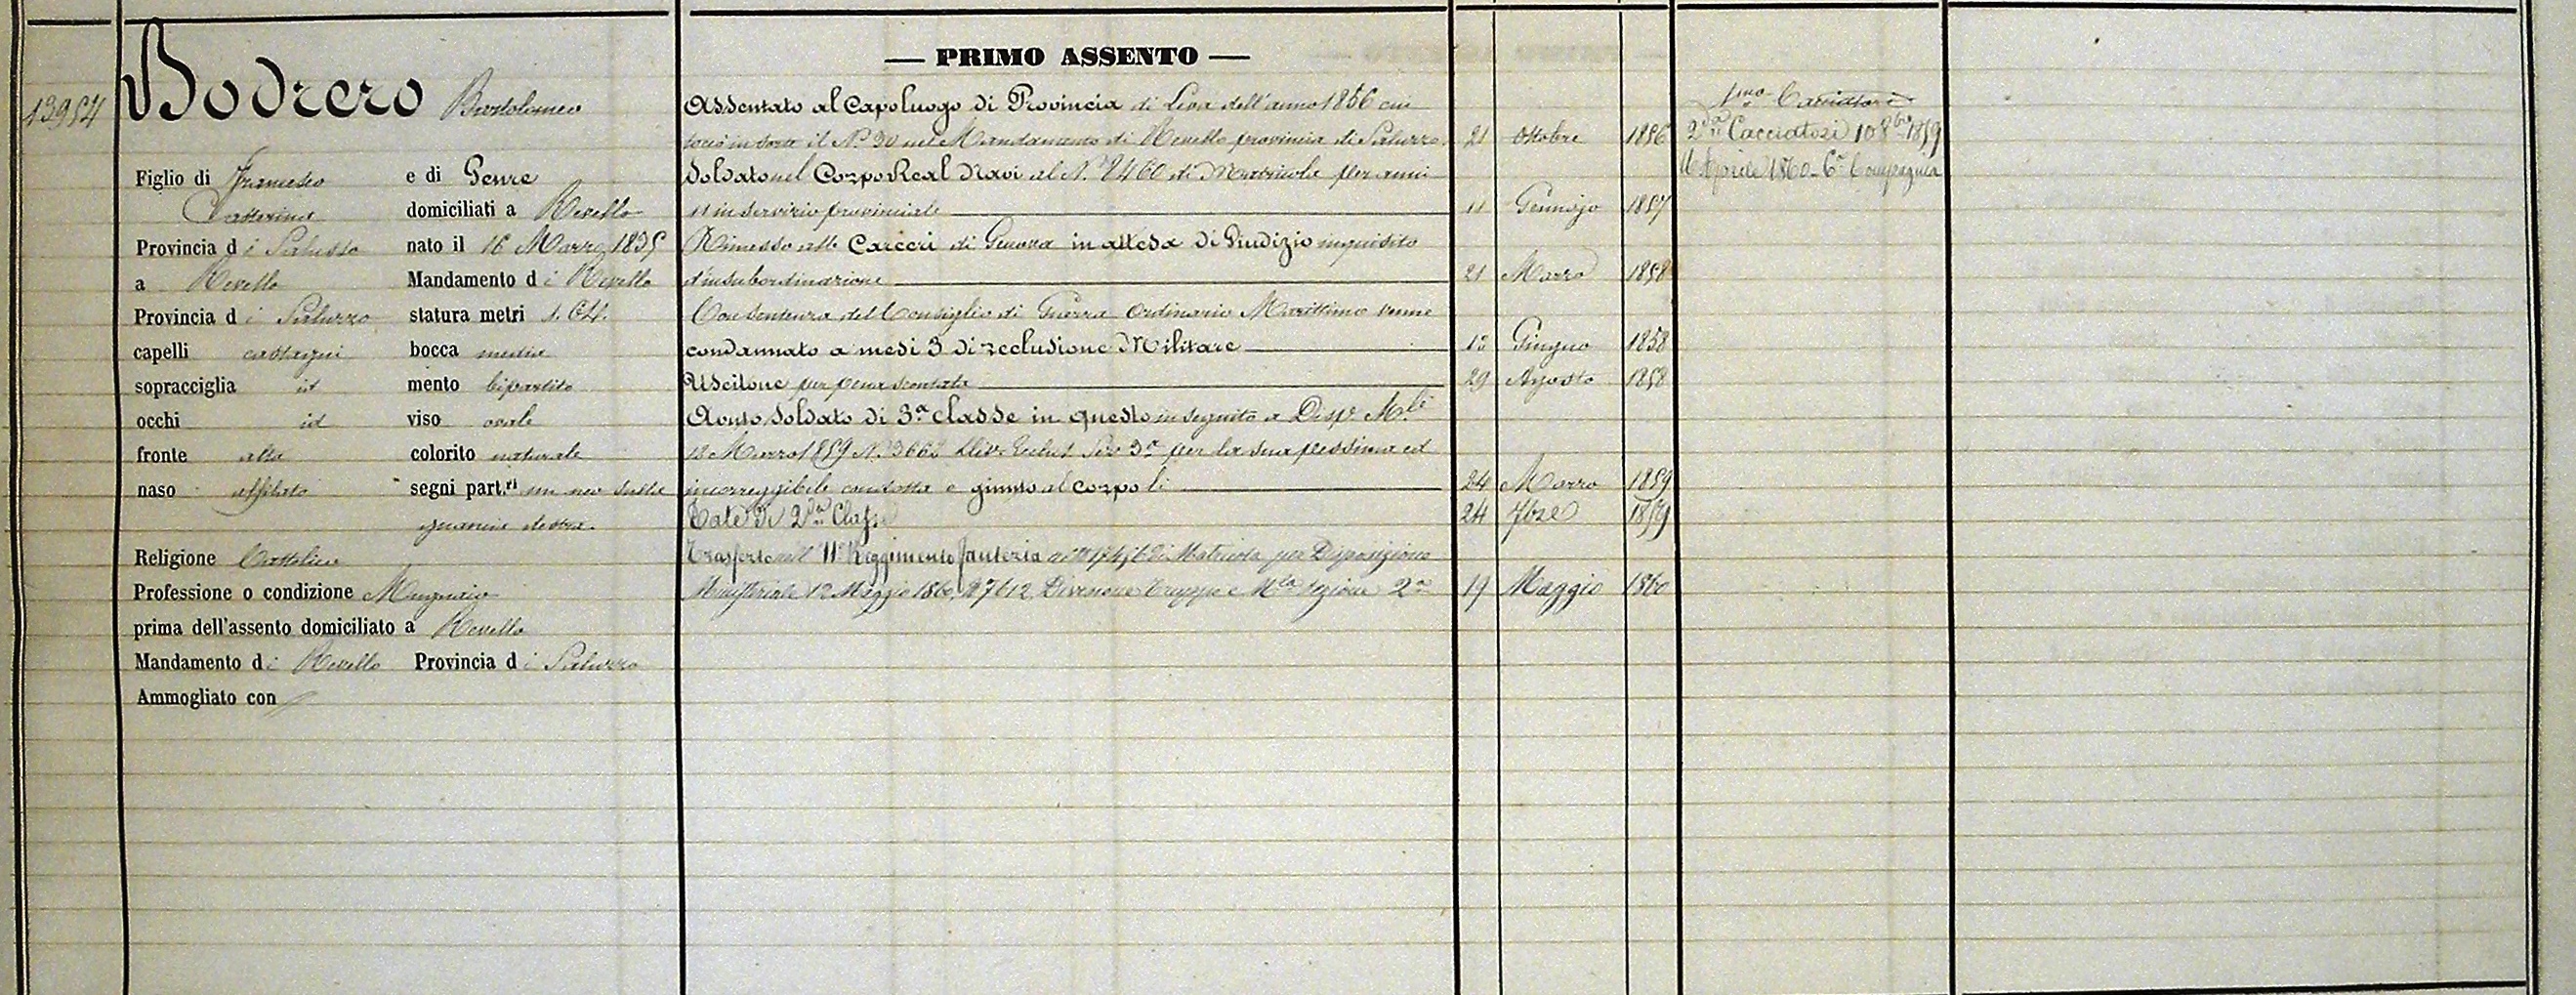 13954
Bodrero Bortolomeo
Figlio di Francesco e di Genre
Catterina domiciliati a Revello
Provincia di Saluzzo nato il 16 Marzo 1835
a Revello Mandamento di Revello
Provincia di Saluzzo statura metri 1.64.
capelli castagni bocca media
sopracciglia id mento bipartito
occhi id viso ovale
fronte alta colorito naturale
naso affilato segni part.ri un neo sulla
guancia destra.
Religione Cattolica
Professione o condizione Mugnaio
prima dell'assento domiciliato a Revello
Mandamento di Revello Provincia di Saluzzo
Ammogliato con
— PRIMO ASSENTO —
Assentato al Capoluogo di Provincia di Leva dell'anno 1856 cui
toccò in sorte il N. 30 nel Mandamento di Revello provincia di Saluzzo. 21 Ottobre 1856
Soldato nel Corpo Real Navi al N. 2460 di Matricola per anni
11 in servizio provinciale 11 Gennajo 1857
Rimesso alle Carceri di Genova in attesa di Giudizio inquisito
d'insubordinazione 21 Marzo 1858
Con Sentenza del Consiglio di Guerra Ordinario Marittimo venne
condannato a mesi 3 di reclusione Militare Giugno 1858
Uscitone per pena scontata 29 Agosto 1858
Soldato di 3a classe in questo in seguito a Disp. M.li
Marzo 1859 N. per la sua pessima ed
incorreggibile condotta e giunto al corpo li 24 Marzo 1859
Tale di 2da Classe 24 7bre 1859
Trasferto nell' 11° Reggimento fanteria di Matricola per Disposizione
Ministeriale 12 Maggio 1860, Divisione Truppe e sezione 2a 19 Maggio 1860
1mo Cacciatori
2da Cacciatori 10 8bre 1859
Aprile 1860 - 6a Compagnia